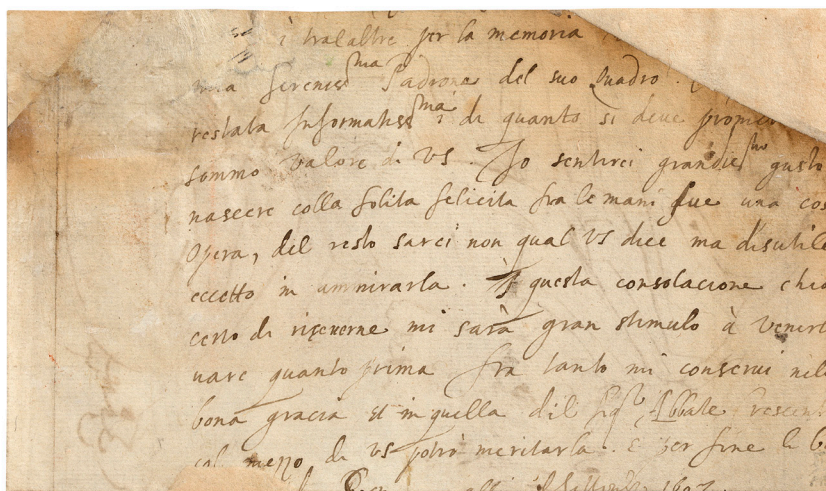 i tralaltre per la memoria
mia Sereniss.ma Padrona del suo Quadro.
restata Informatiss.ma di quanto si deve
sommo valore di VS. Io sentirei grandiss.mo gusto
nascere colla solita felicita fra le mani sue una cos
Opera, del resto sarei non qual VS dice ma disutile
eccetto in ammirarla. questa consolacione
certo di riceverne mi sarà gran stimulo à
nare quanto prima fra tanto mi conservi nel
bona gracia et in quella dil Sig.r Abbate
col mezzo di VS potrò meritarla. E per fine le